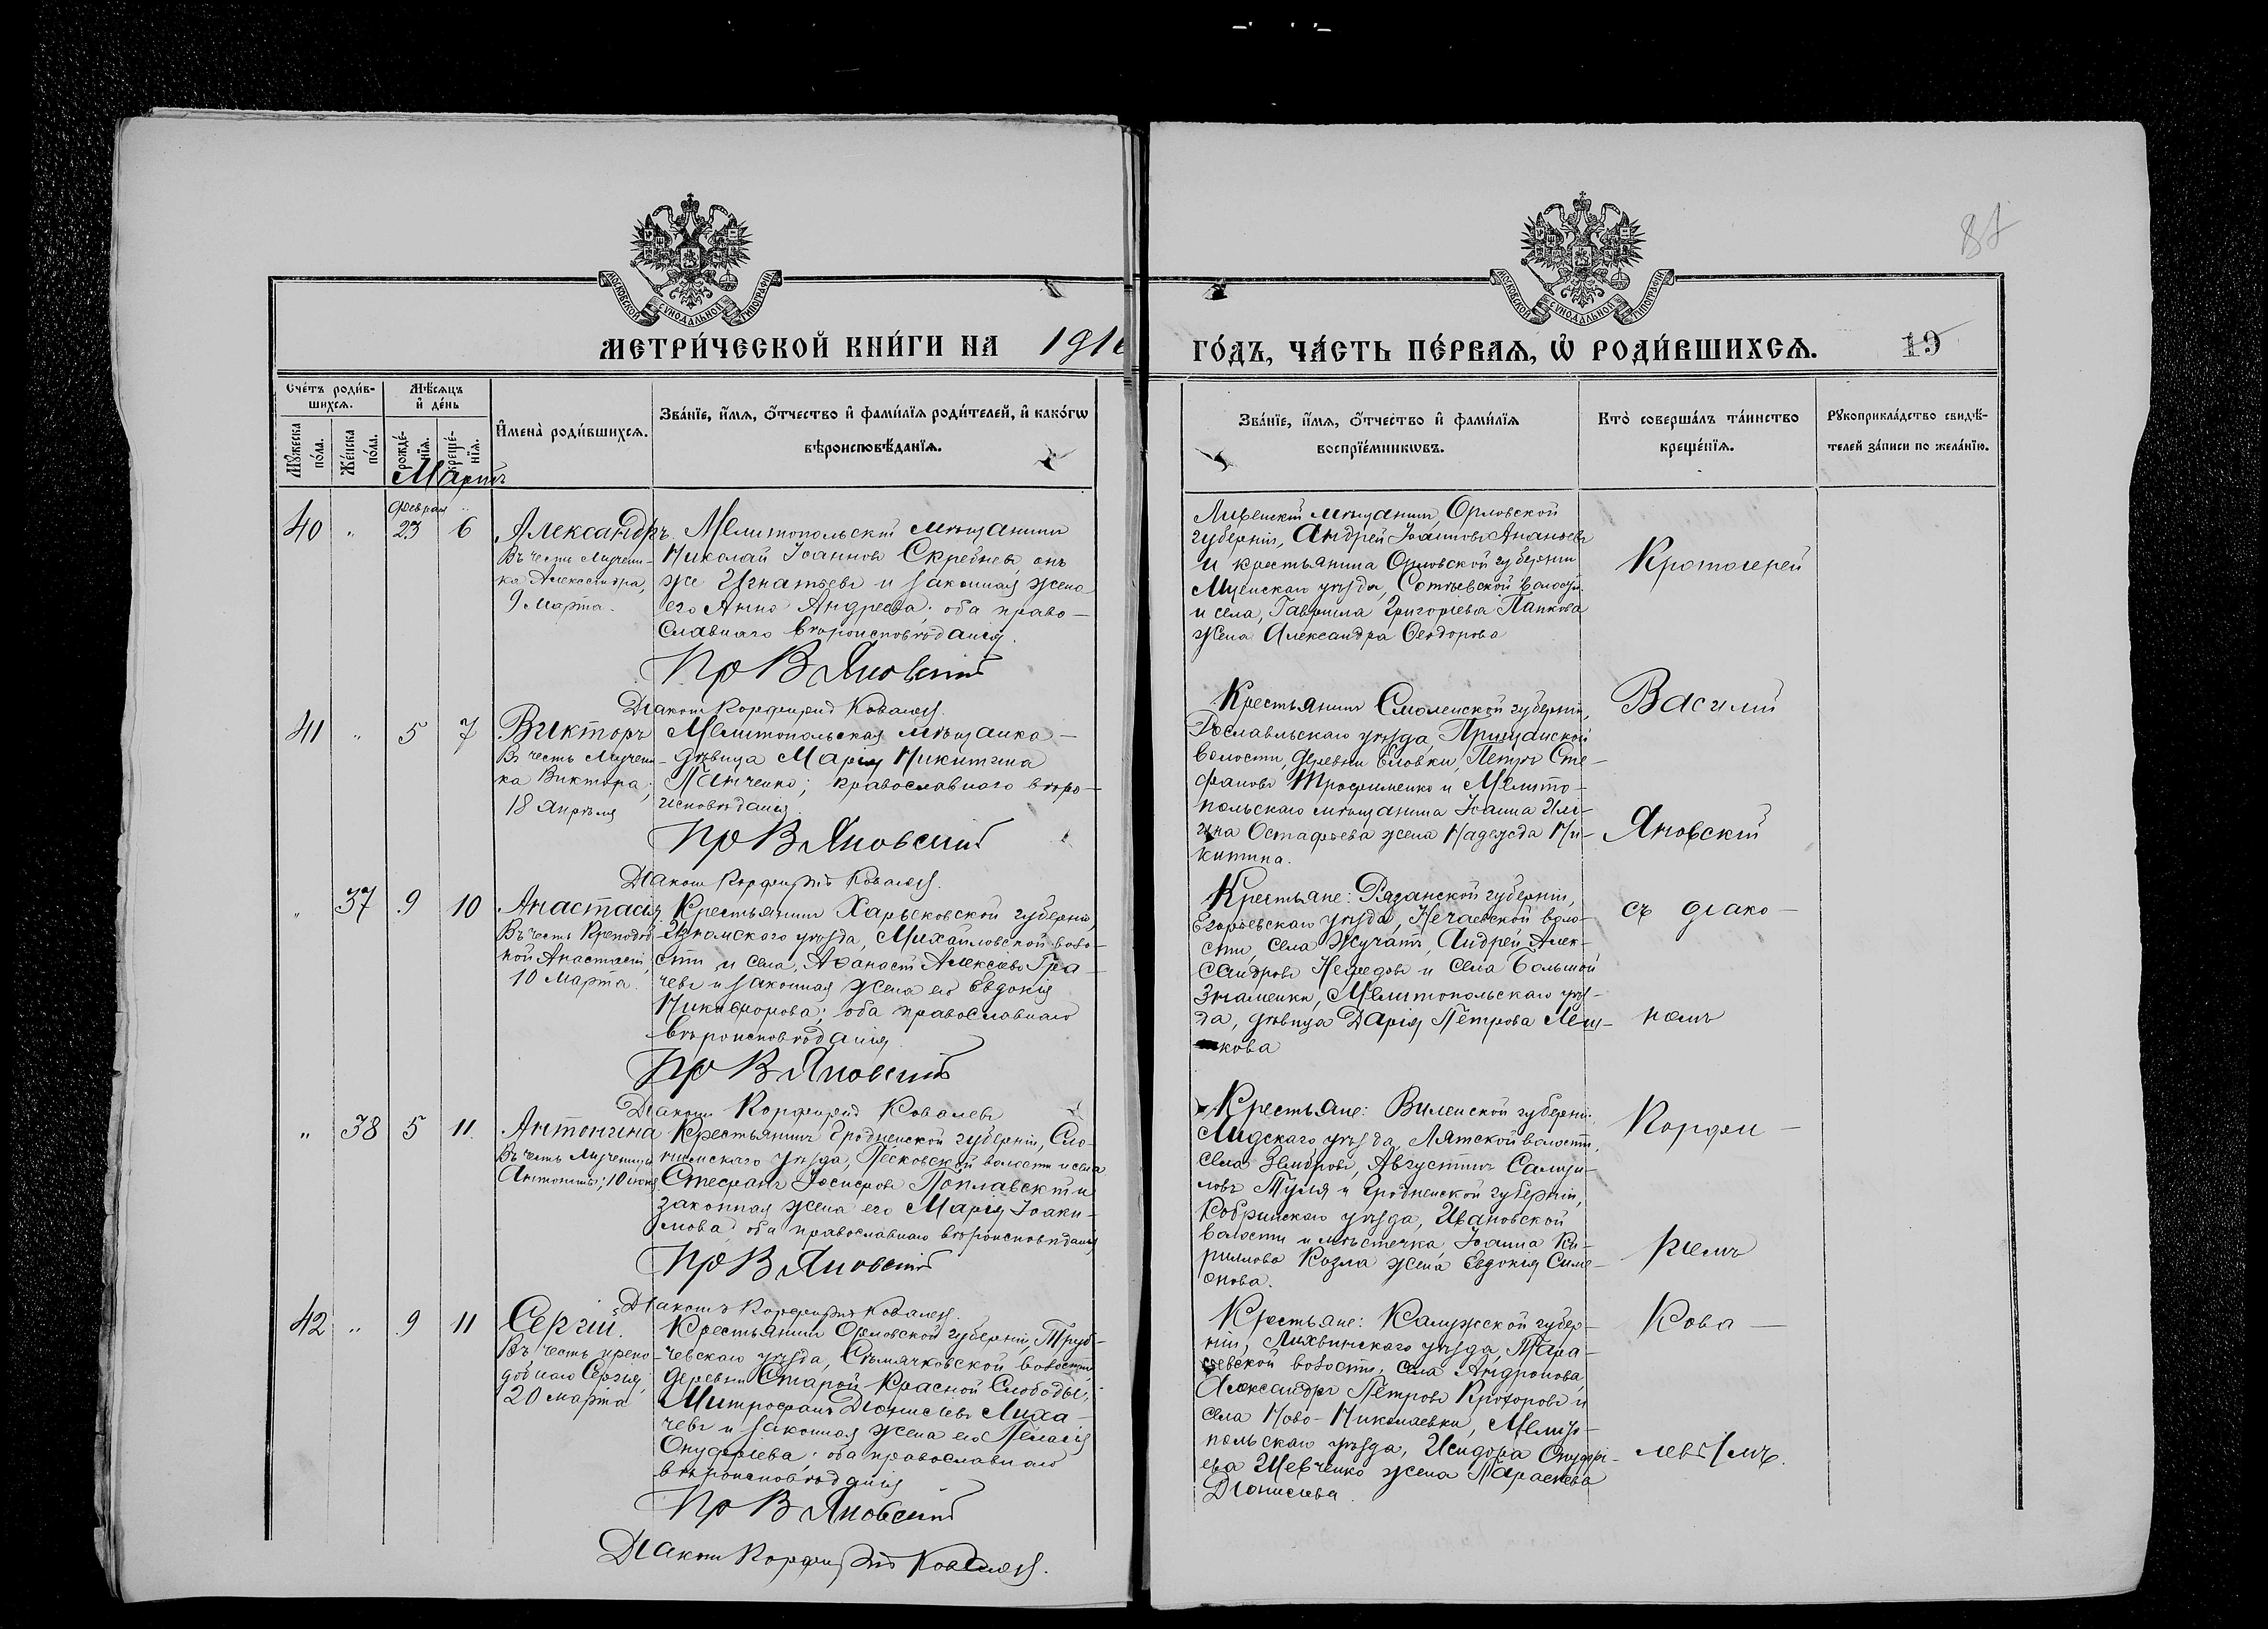 87
МОСКОВСКОЙ СѴНОДАЛЬНОЙ ТИПОГРАФІИ
МОСКОВСКОЙ СѴНОДАЛЬНОЙ ТИПОГРАФІИ
МЕТРИ́ЧЕСКОЙ КНИ́ГИ НА 191
ГО́ДЪ, ЧА́СТЬ ПЕ́РВАѦ, Ѡ҆ РОДИ́ВШИХСѦ. 19
Сче́тъ роди́в-
шихсѧ.
Мѣ́сѧцъ
и҆ де́нь
Мꙋ́жеска
по́ла.
Же́нска
по́ла.
рожде́-
нїѧ.
креще́-
нїѧ.
И҆мена̀ роди́вшихсѧ.
Зва́нїе, и҆́мѧ, ѻ҆́тчество и҆ фами́лїѧ роди́телей, и҆ како́гѡ
вѣроисповѣ́данїѧ.
Зва́нїе, и҆́мѧ, ѻ҆́тчество и҆ фами́лїѧ
воспрїе́мникѡвъ.
Кто̀ соверша́лъ та́инство
креще́нїѧ.
Рꙋкоприкла́дство свидѣ́-
телей за́писи по жела́нїю.
Мартъ
40 " Феврал 23 6
Александръ
Въ честь Мучени-
ка Александра,
9 Марта.
Мелитопольскій мѣщанинъ
Николай Іоанновъ Скребневъ, онъ
же Игнатьевъ и законная жена
его Анна Андреева; оба право-
славнаго вѣроисповѣданія.
Пр В Яновскій
Діаконъ Порфирій Ковалевъ.
Ливенскій мѣщанинъ, Орловской
губерніи, Андрей Іоанновъ Ананьевъ
и крестьянина Орловской губерніи
Мценскаго уѣзда,
и села, Гавриила Григоріева Папкова
жена Александра Ѳеодорова
Протоіерей
41 " 5 7
Викторъ
Въ честь Мучени-
ка Виктора;
18 Апрѣля
Мелитопольская мѣщанка -
дѣвица Марія Никитина
Панченко; православнаго вѣро-
исповѣданія.
Пр В Яновскій
Діаконъ Порфирій Ковалевъ.
Крестьянинъ Смоленской губерніи,
Рославльскаго уѣзда,
волости, деревни Еловки, Петръ Сте-
фановъ Трофименко и Мелито-
польскаго мѣщанина Іоанна Иль-
ина Остафьева жена Надежда Ни-
китина.
Василій
Яновскій
" 37 9 10
Анастасія
Въ честь Преподоб-
ной Анастасіи,
10 Марта.
Крестьянинъ Харьковской губерніи,
Изюмскаго уѣзда, Михайловской воло-
сти и села, Аѳанасій Алексіевъ Гра-
чевъ и законная жена его Евдокія
Никифорова; оба православнаго
вѣроисповѣданія
Пр В Яновскій
Діаконъ Порфирій Ковалевъ
Крестьяне: Рязанской губерніи,
Егорьевскаго уѣзда, Нечаевской воло-
сти, села Жучатъ, Андрей Алек-
сандровъ Нефедовъ и села Большой
Знаменки, Мелитопольскаго уѣз-
да, дѣвица Дарія Петрова
кова
съ діако-
номъ
" 38 5 11.
Антонина
Въ честь Мученицы
Антонины; 10 іюня
Крестьянинъ Гродненской губерніи, Сло-
нимскаго уѣзда, Песковской волости и села
Стефанъ Іосифовъ Поплавскій и
законная жена его Марія Іоаки-
мова; оба православнаго вѣроисповѣданія
Пр В Яновскій
Діаконъ Порфирій Ковалевъ.
Крестьяне: Виленской губерніи.
Лидскаго уѣзда, волости,
села Августинъ Самуи-
ловъ и Гродненской губерніи,
Кобринскаго уѣзда, Ивановской
волости и мѣстечка, Іоанна Ки-
риллова Козла жена Евдокія Симе-
онова.
Порфи-
ріемъ
42 " 9 11
Сергій.
Въ честь препо-
добнаго Сергія;
20 марта
Крестьянинъ Орловской губерніи, Труб-
чевскаго уѣзда, волости,
деревни Старой Красной Слободы,
Митрофанъ Діонисіевъ Лиха-
чевъ и законная жена его Пелагія
Онуфріева; оба православнаго
вѣроисповѣданія
Пр В Яновскій
Діаконъ Порфирій Ковалевъ.
Крестьяне: Калужской губер-
ніи, Лихвинскаго уѣзда,
волости, села Андронова,
Александръ Петровъ Прохоровъ и
села Ново-Николаевки, Мелито-
польскаго уѣзда, Исидора Онуфрі-
ева Шевченко жена Параскева
Діонисіева.
Кова-
левымъ.